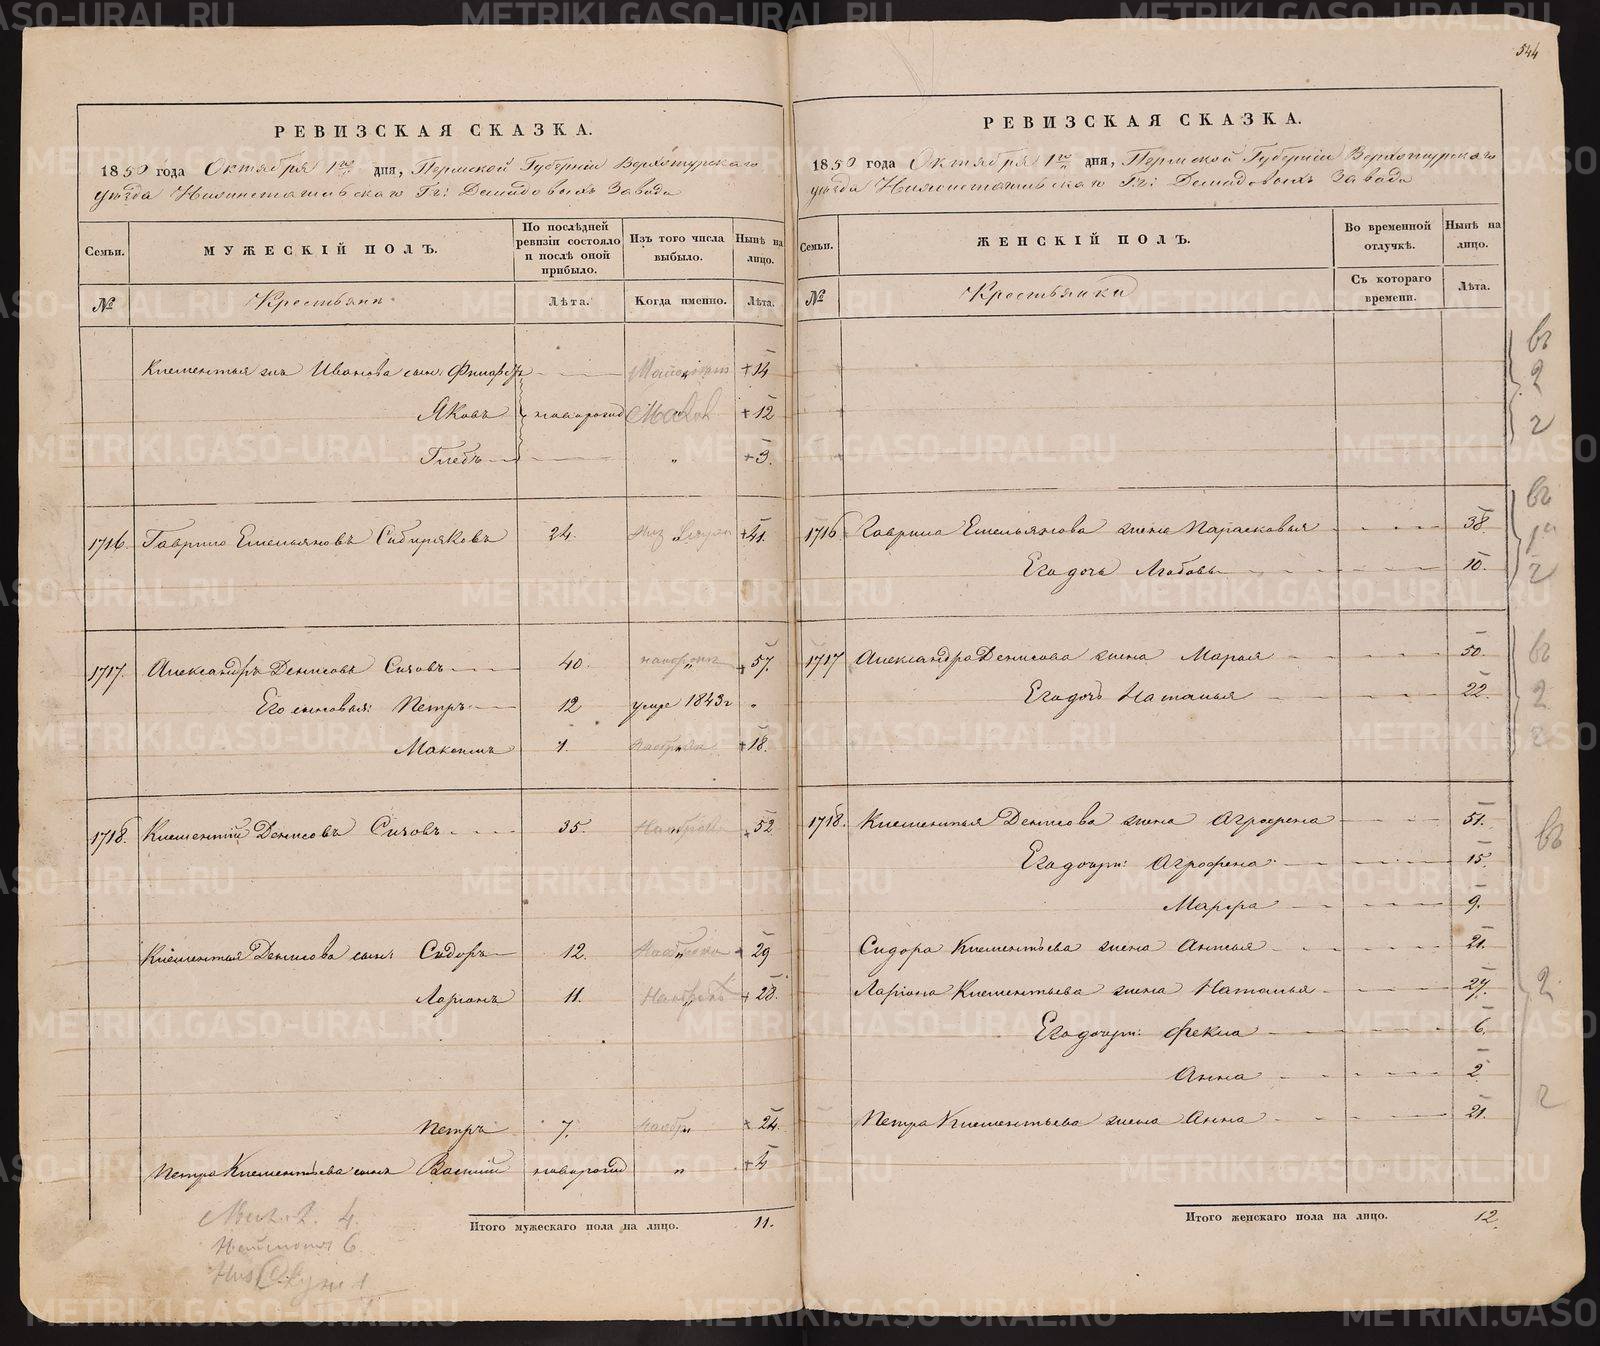 544
РЕВИЗСКАЯ СКАЗКА.
1850 года Октября 1го дня, Пермской Губерніи Верхотурскаго
уѣзда Нижнетагильскаго Гг: Демидовыхъ Завода
Семьи. МУЖЕСКІЙ ПОЛЪ. По послѣдней ревизіи состояло и послѣ оной прибыло. Изъ того числа выбыло. Нынѣ на лицо.
№ Крестьяне Лѣта. Когда именно. Лѣта.
Климентья Иванова сын: 14
Яковъ новорожд 12
Глебъ " 3.
1716. Гаврило Емельяновъ Сибиряковъ 24. 41.
1717. Александръ Денисовъ Сизовъ 40. 57.
Его сыновья: Петръ 12 умре 1843 г "
Максимъ 1. 18.
1718. Климентій Денисовъ Сизовъ 35. 52
Климентья Денисова сын: Сидоръ 12. 29
Ларіонъ 11. 28.
Петръ 7. 24.
Петра Климентьева сынъ Василій новорожд "
Итого мужескаго пола на лицо. 11.
4.
6
1
РЕВИЗСКАЯ СКАЗКА.
1850 года Октября 1го дня, Пермской Губерніи Верхотурскаго
уѣзда Нижнетагильскаго Гг: Демидовыхъ Завода
Семьи. ЖЕНСКІЙ ПОЛЪ. Во временной отлучкѣ. Нынѣ на лицо.
№ Крестьянки Съ котораго времени. Лѣта.
1716 Гаврила Емельянова жена Парасковья 38.
Его дочь Любовь 10.
1717 Александра Денисова жена Марья 50.
Его дочь Наталья 22.
1718. Климентья Денисова жена Агрофена 51.
Его дочери: Агрофена 15.
Марфа 9.
Сидора Климентьева жена 21.
Ларіона Климентьева жена Наталья 27.
Его дочери: Фекла 6.
Анна 2
Петра Климентьева жена Анна 21.
Итого женскаго пола на лицо. 12.
METRIKI.GASO-URAL.RU